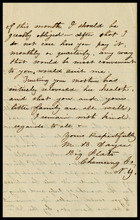 of this month. I should be
greatly obliged — after that I
do not care how you pay it,
monthly or quarterly, any way
that would be most convenient
to you, would suit me.
Trusting your mother had
entirely recovered her health,
and that you and your
family are all well,
I remain with kind
regards to all
Yours Respectfully
M. B. Sayre
Big Flats
Chemung Co.
N.Y.